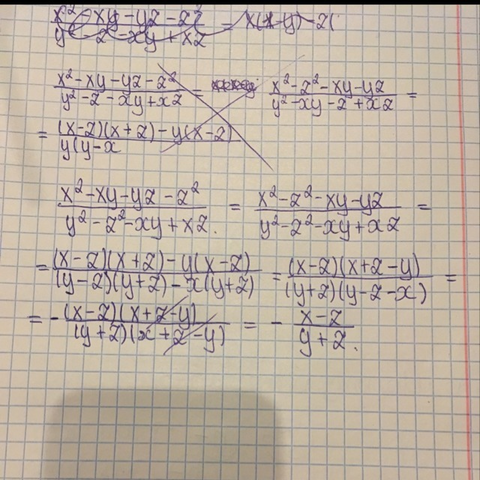 x² - xy - yz - zz = x(x-y) - z(
y² z - xy + xz
x² - xy - yz - z² / y² - z - xy + xz = x² - z² - xy - yz / y² - xy - z + xz =
= (x-z)(x+z) - y(x-z) / y(y-x
x² - xy - yz - z² / y² - z² - xy + xz. = x² - z² - xy - yz / y² - z² - xy + xz =
= (x-z)(x+z) - y(x-z) / (y-z)(y+z) - x(y+z) = (x-z)(x+z-y) / (y+z)(y-z-x) =
= - (x-z)(x+z-y) / (y+z)(x+z-y) = - x-z / y+z.